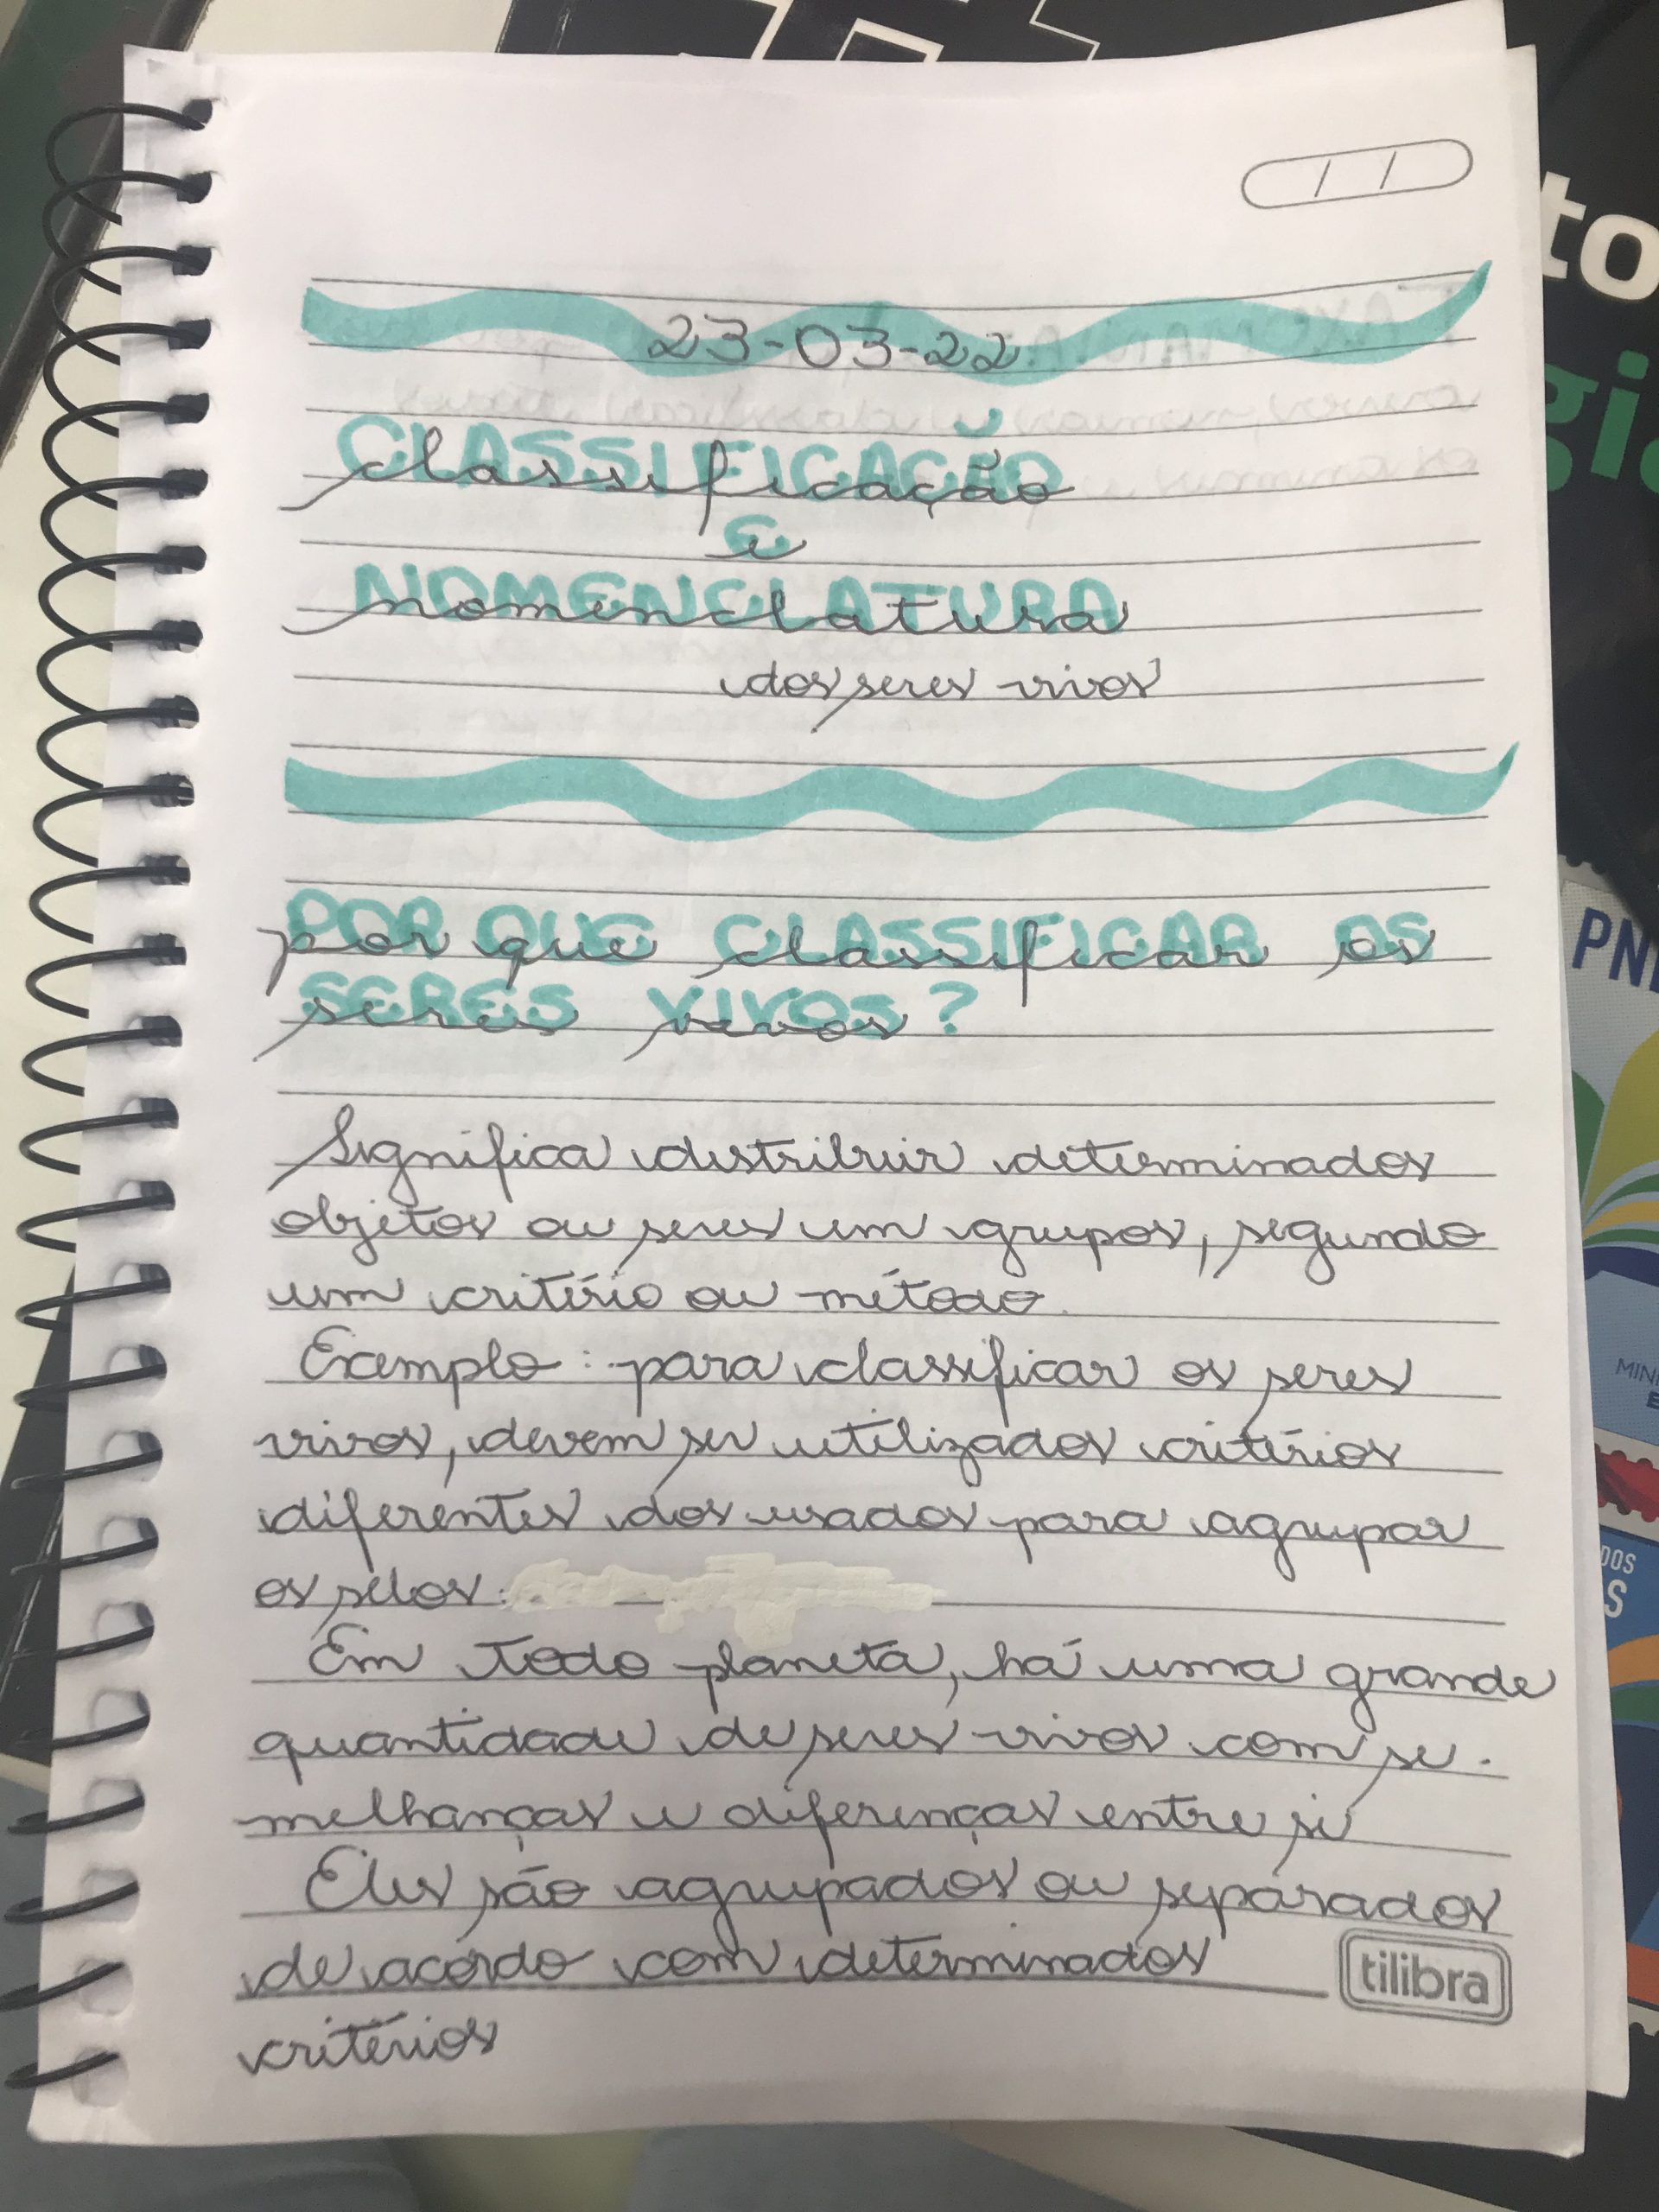 / /
23-03-22
CLASSIFICAÇÃO
classificação
E
e
NOMENCLATURA
nomenclatura
dos seres vivos
POR QUE CLASSIFICAR OS
por que classificar os
SERES VIVOS?
seres vivos
Significa distribuir determinados
objetos ou seres em grupos, segundo
um critério ou método.
Exemplo: para classificar os seres
vivos, devem ser utilizados critérios
diferentes dos usados para agrupar
os selos:
Em todo planeta, há uma grande
quantidade de seres vivos com se-
melhanças e diferenças entre si
Eles são agrupados ou separados
de acordo com determinados
critérios
tilibra
to
gi
PN
MIN
DOS
S